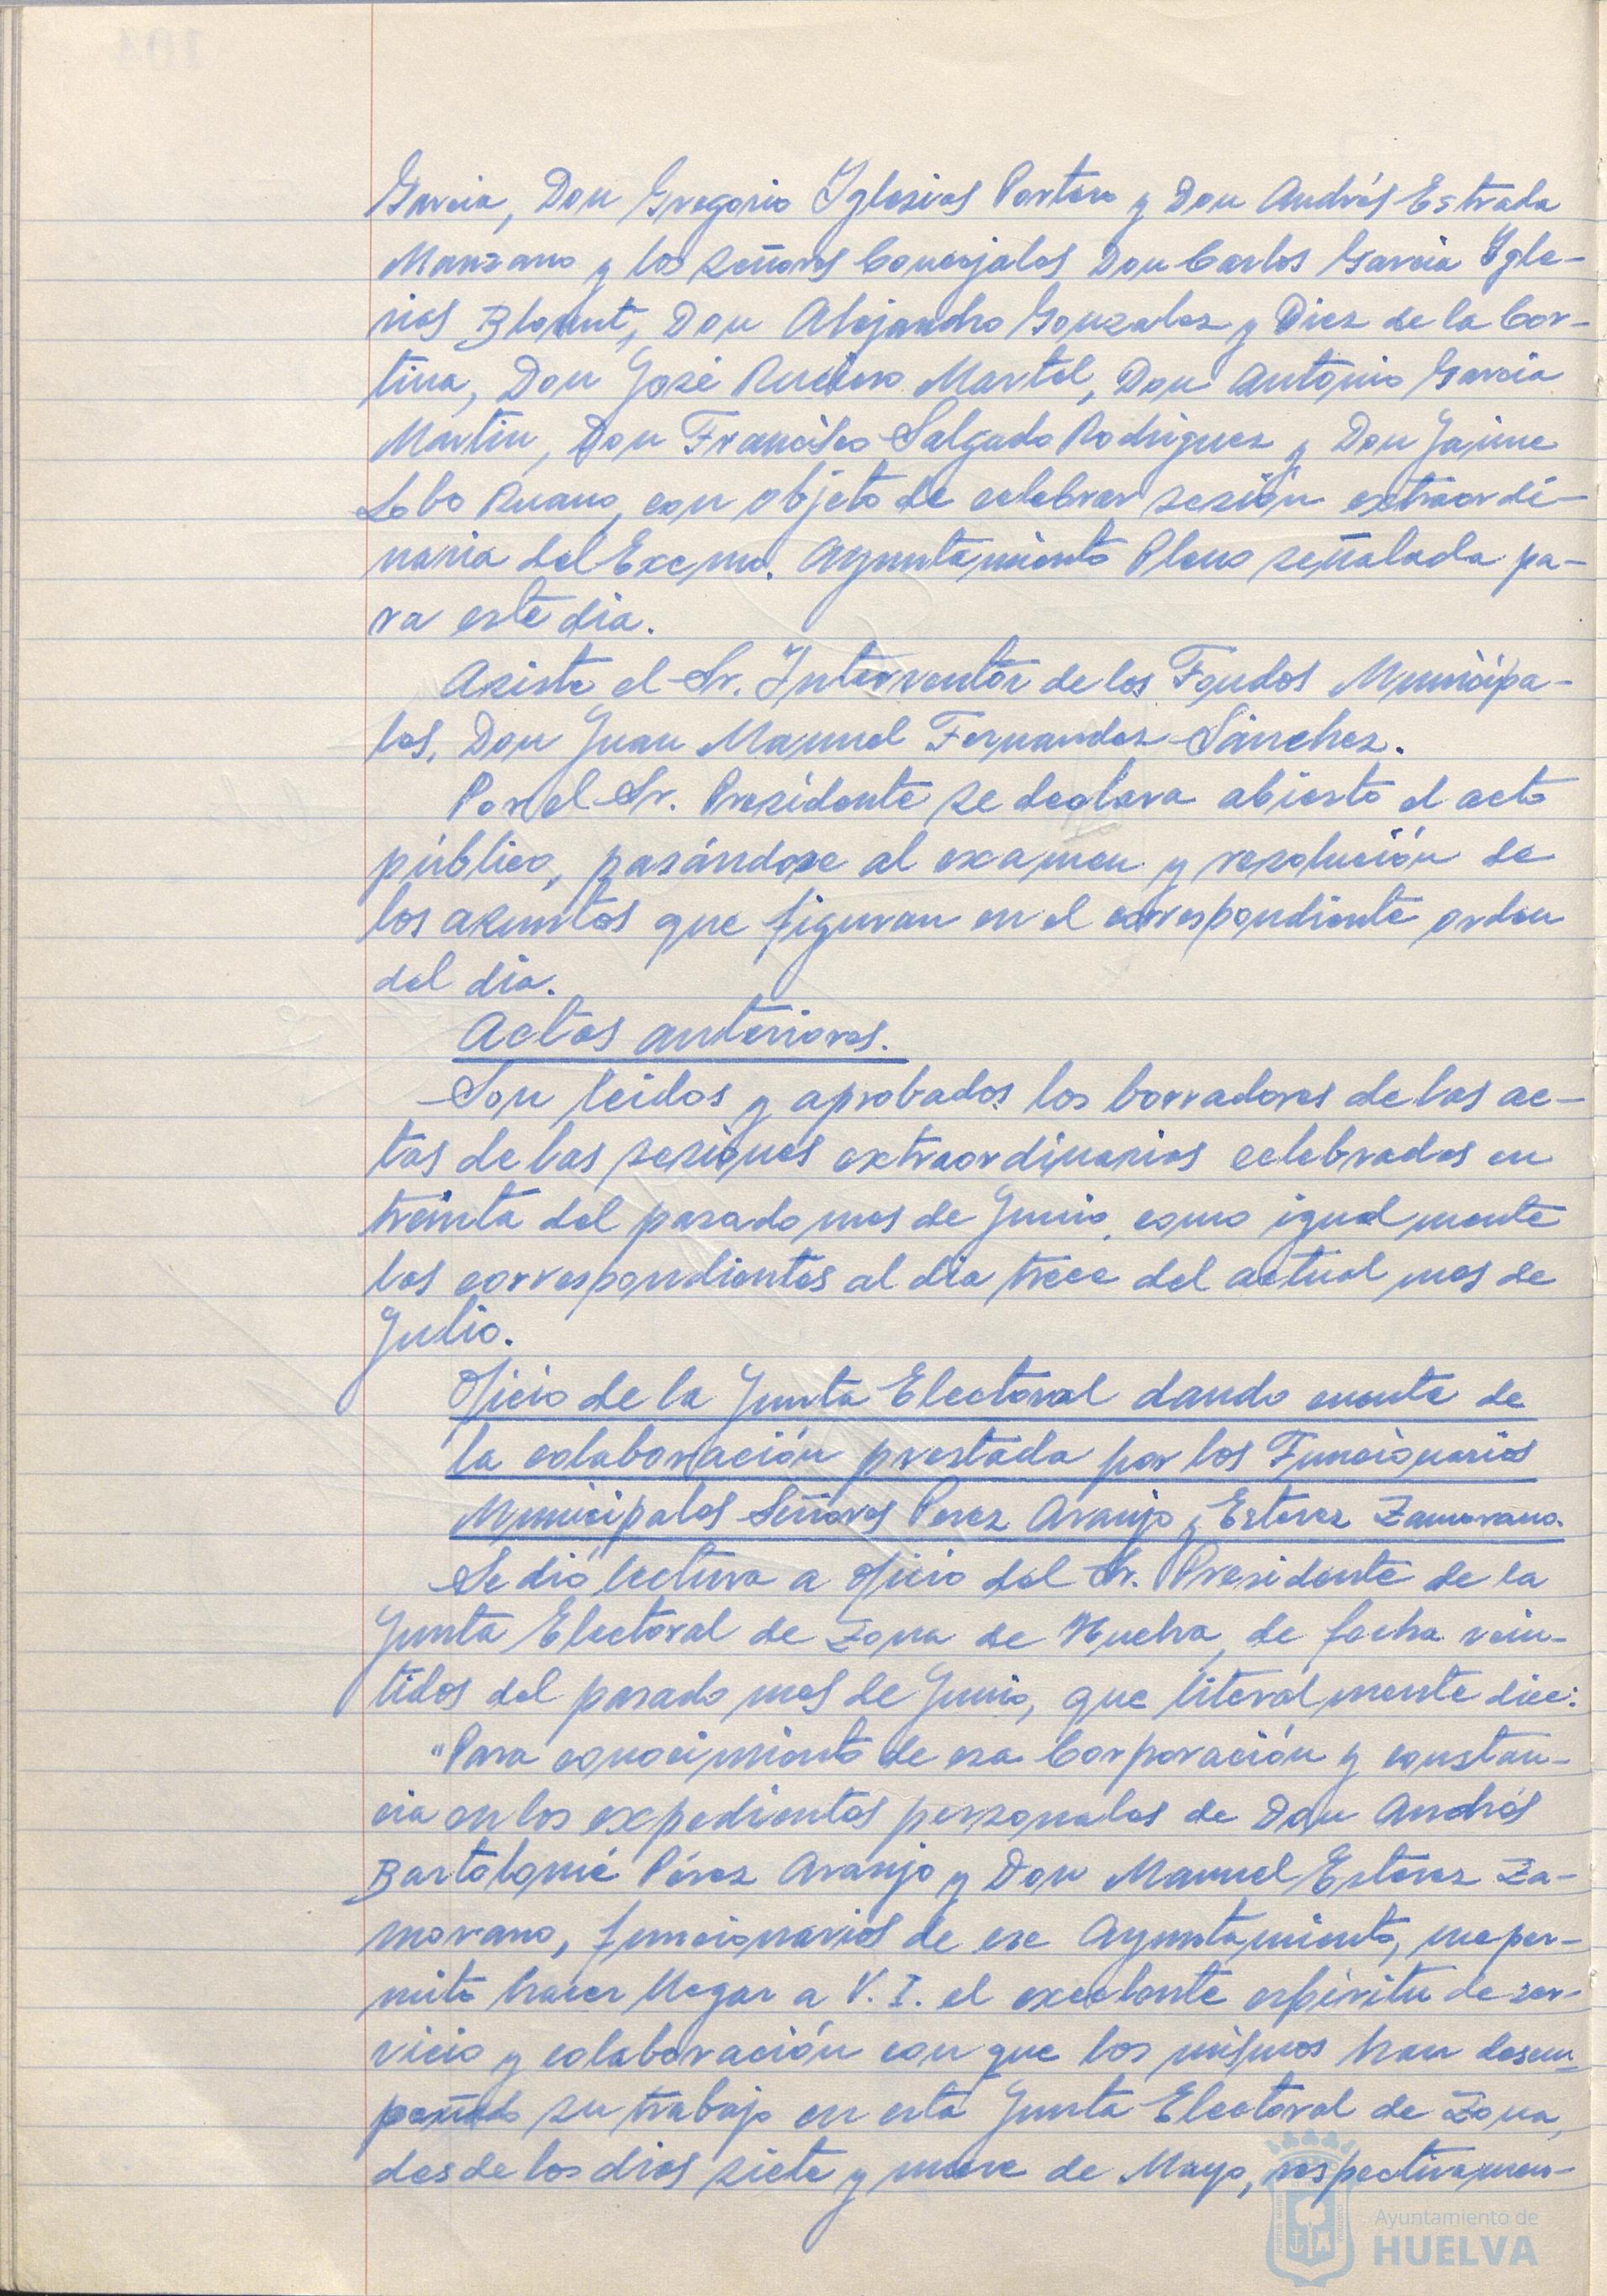 Garcia, Don Gregorio Yglesias Portero y Don Andrés Estrada
Manzano y los señores Concejales Don Carlos Garcia Ygle-
sias Blount, Don Alejandro Gonzalez y Diez de la Cor-
tina, Don José Rucero Martel, Don Antonio Garcia
Martin, Don Francisco Salgado Rodriguez y Don Jaime
Lobo Ruano, con objeto de celebrar sesión extraordi-
naria del Excmo. Ayuntamiento Pleno señalada pa-
ra este dia.
Asiste el Sr. Interventor de los Fondos Municipa-
les, Don Juan Manuel Fernandez Sánchez.
Por el Sr. Presidente se declara abierto el acto
público, pasándose al examen y resolución de
los asuntos que figuran en el correspondiente orden
del dia.
Actas anteriores.
Son leidos y aprobados los borradores de las ac-
tas de las sesiones extraordinarias celebradas en
treinta del pasado mes de Junio, como igualmente
las correspondientes al dia trece del actual mes de
Julio.
Oficio de la Junta Electoral dando cuenta de
la colaboración prestada por los Funcionarios
Municipales Señores Perez Araujo y Estevez Zamorano.
Se dió lectura a oficio del Sr. Presidente de la
Junta Electoral de Zona de Huelva, de fecha vein-
tidos del pasado mes de Junio, que literalmente dice:
"Para conocimiento de esa Corporación y constan-
cia en los expedientes personales de Don Andrés
Bartolomé Pérez Araujo y Don Manuel Estevez Za-
morano, funcionarios de ese Ayuntamiento, me per-
mito hacer llegar a V. I. el excelente espiritu de ser-
vicio y colaboración con que los mismos han desem-
peñado su trabajo en esta Junta Electoral de Zona,
desde los dias siete y nueve de Mayo, respectivamen-
Ayuntamiento de
HUELVA